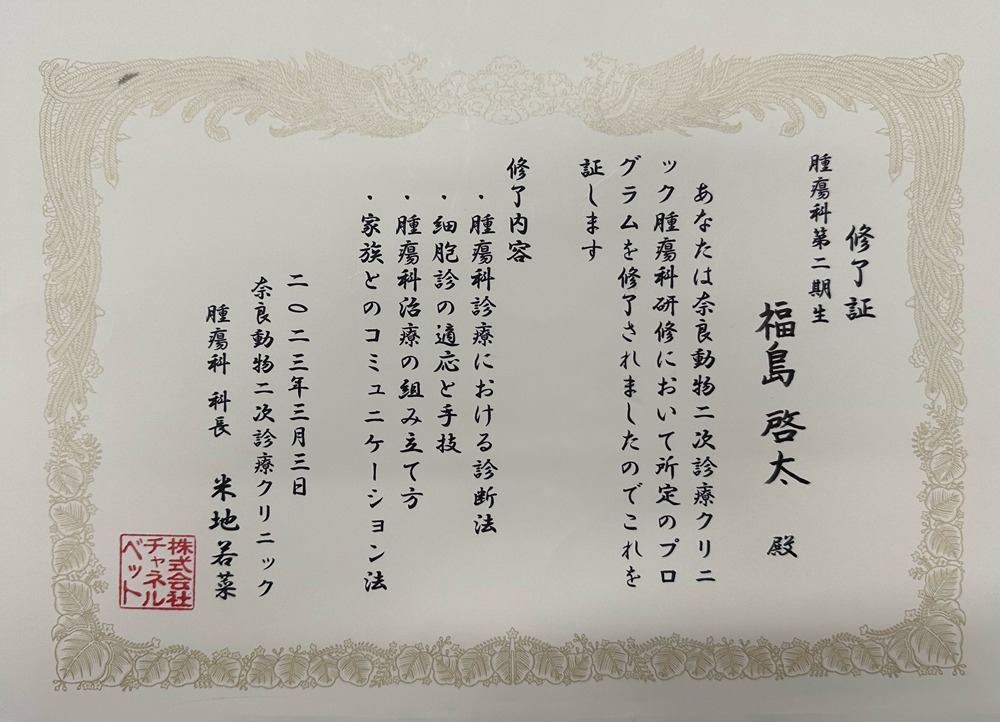 修了証
腫瘍科第二期生
福島 啓太 殿
あなたは奈良動物二次診療クリニ
ック腫瘍科研修において所定のプロ
グラムを修了されましたのでこれを
証します
修了内容
・腫瘍科診療における診断法
・細胞診の適応と手技
・腫瘍科治療の組み立て方
・家族とのコミュニケーション法
二〇二三年三月三日
奈良動物二次診療クリニック
腫瘍科 科長 米地若菜
株式会社
チャネル
ベット